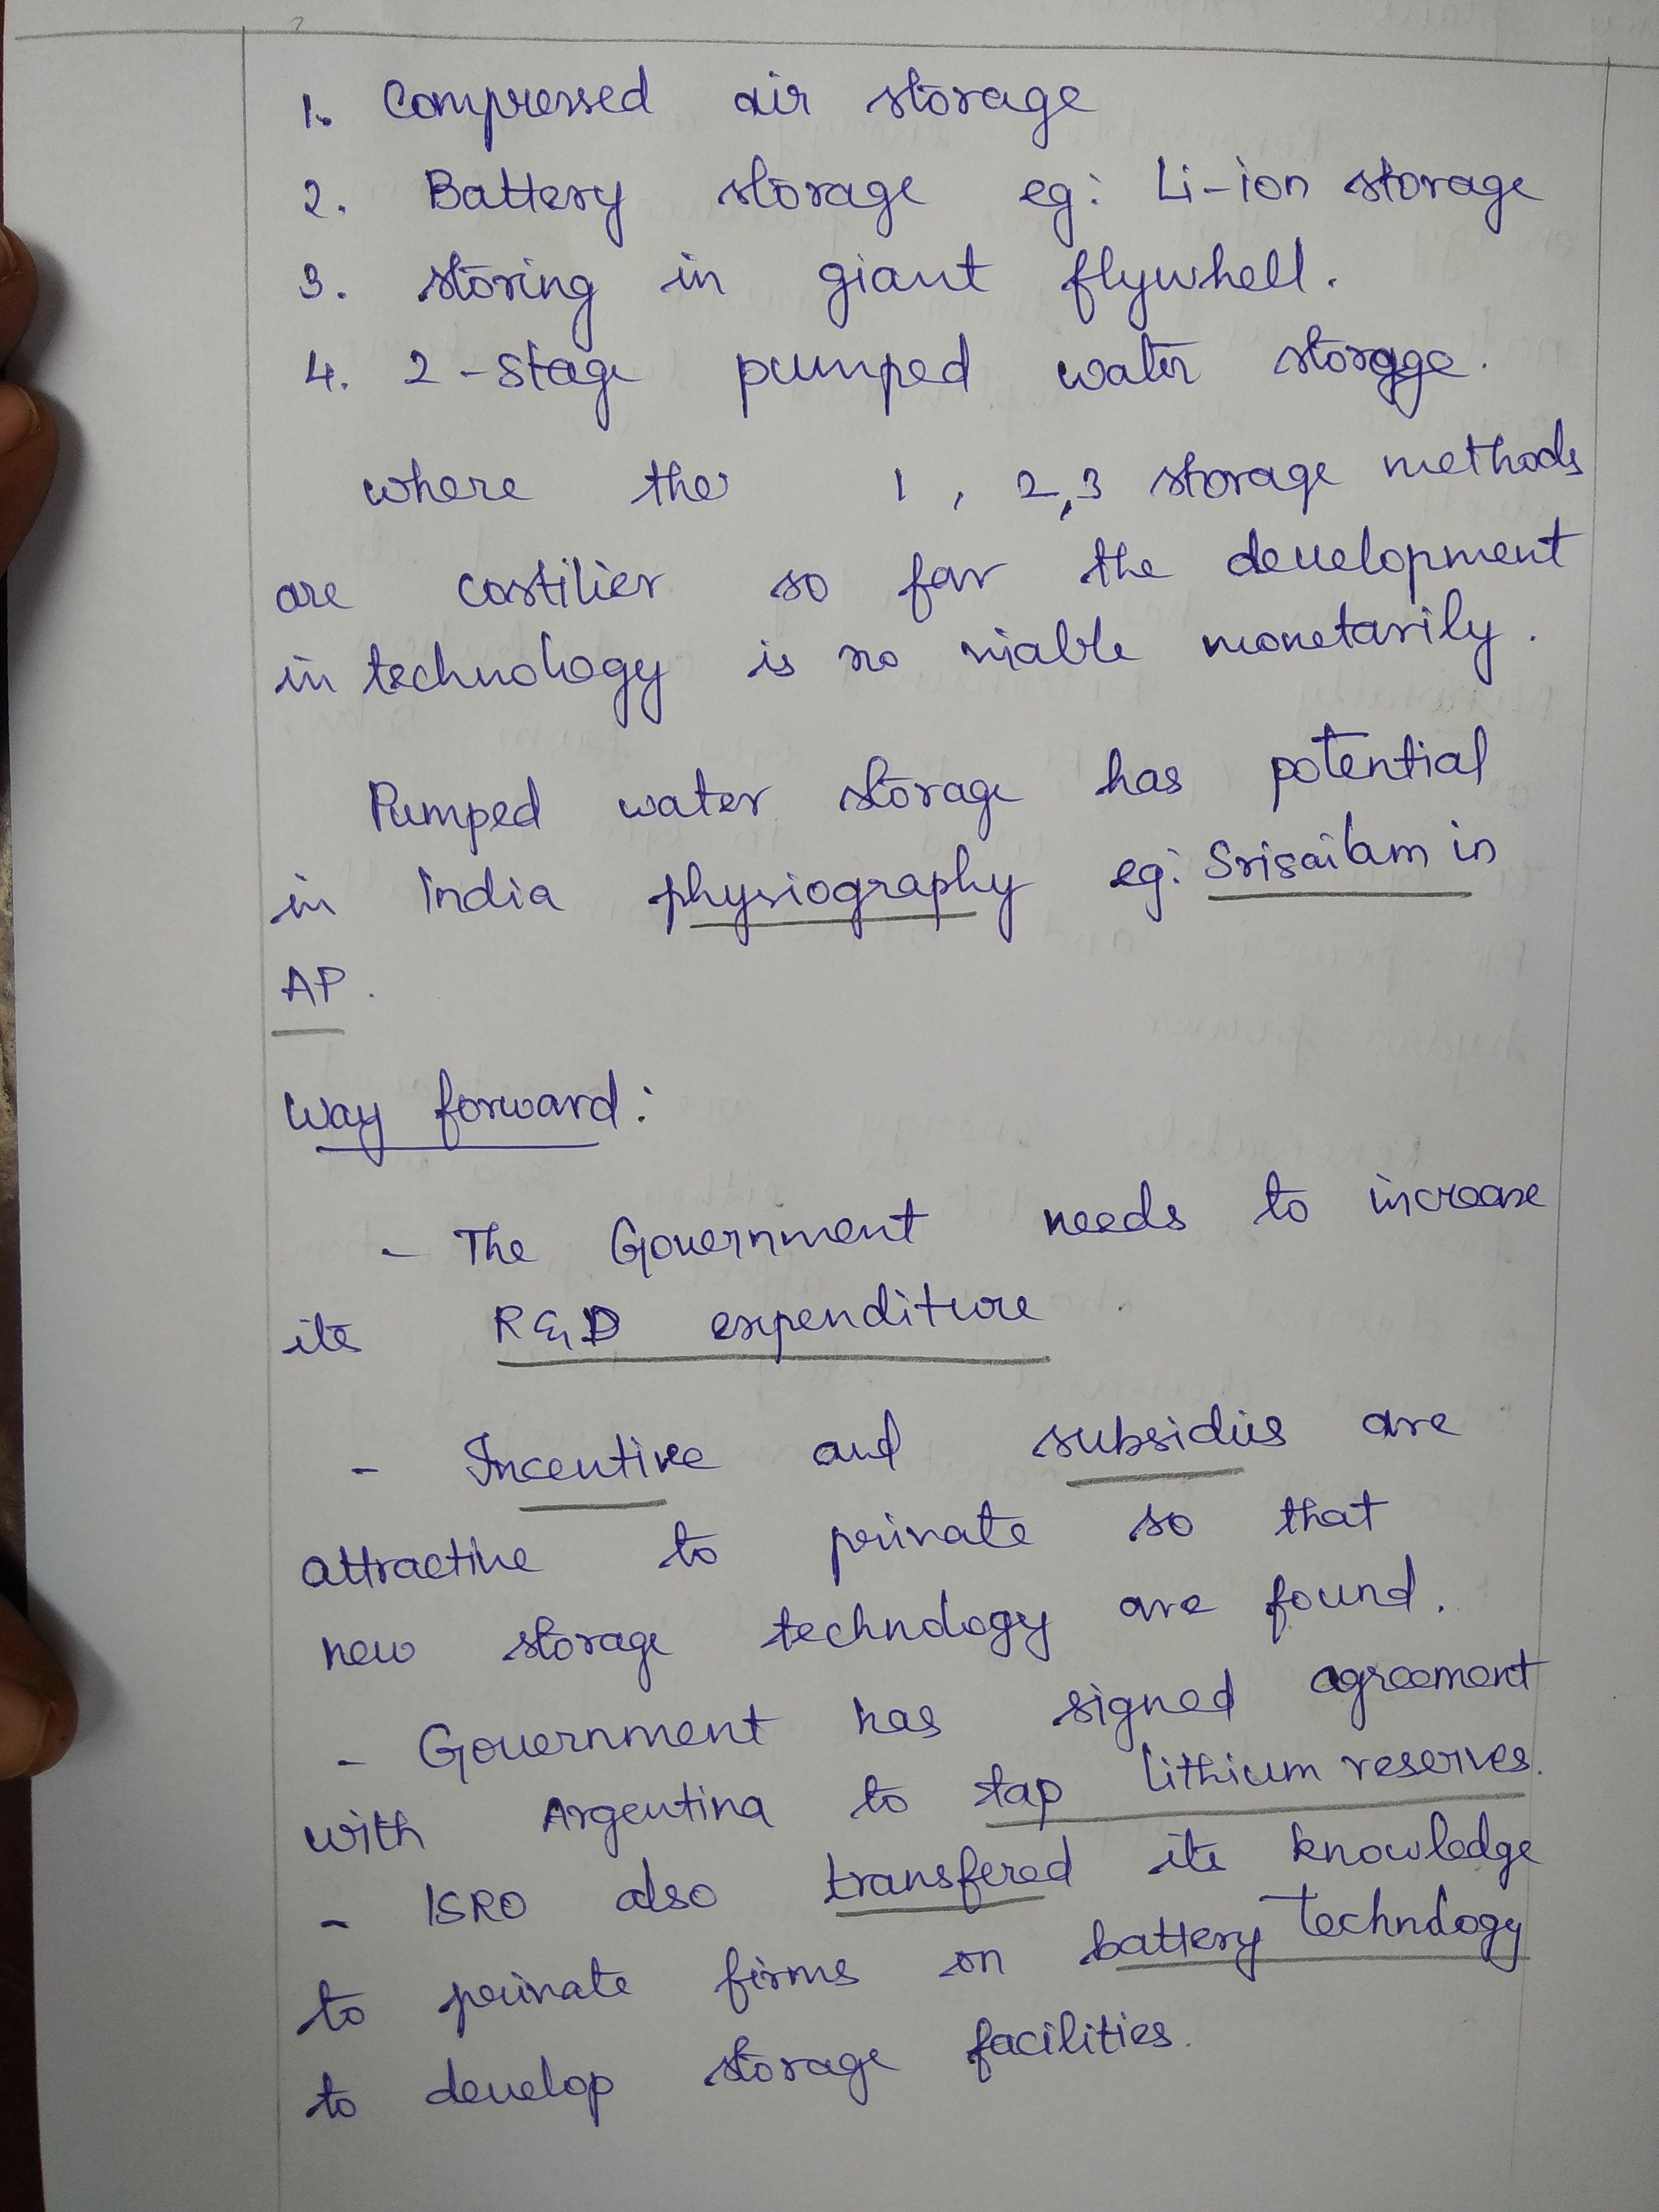 1. Compressed air storage
2. Battery storage eg: Li-ion storage
3. storing in giant flywhell.
4. 2-stage pumped water storage.
where the 1, 2,3 storage methods
are costilier so far the development
in technology is no viable monetarily.
Pumped water storage has potential
in India physiography eg: Srisailam in
AP.
Way forward:
- The Government needs to increase
its R&D expenditure
- Incentive and subsidies are
attractive to private so that
new storage technology are found.
- Government has signed agreement
with Argentina to tap lithium reserves.
- ISRO also transfered its knowledge
to private firms on battery technology
to develop storage facilities.